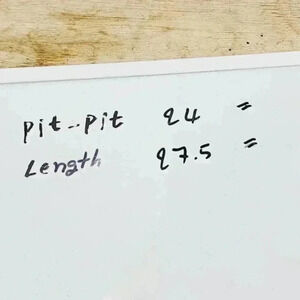 pit--pit 24 =
Length 27.5 =